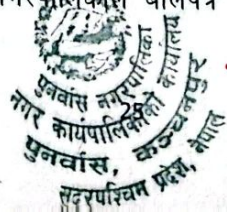 पुनर्वास नगरपालिका
नगर कार्यपालिकाको कार्यालय
पुनर्वास, कञ्चनपुर
सुदूरपश्चिम प्रदेश, नेपाल